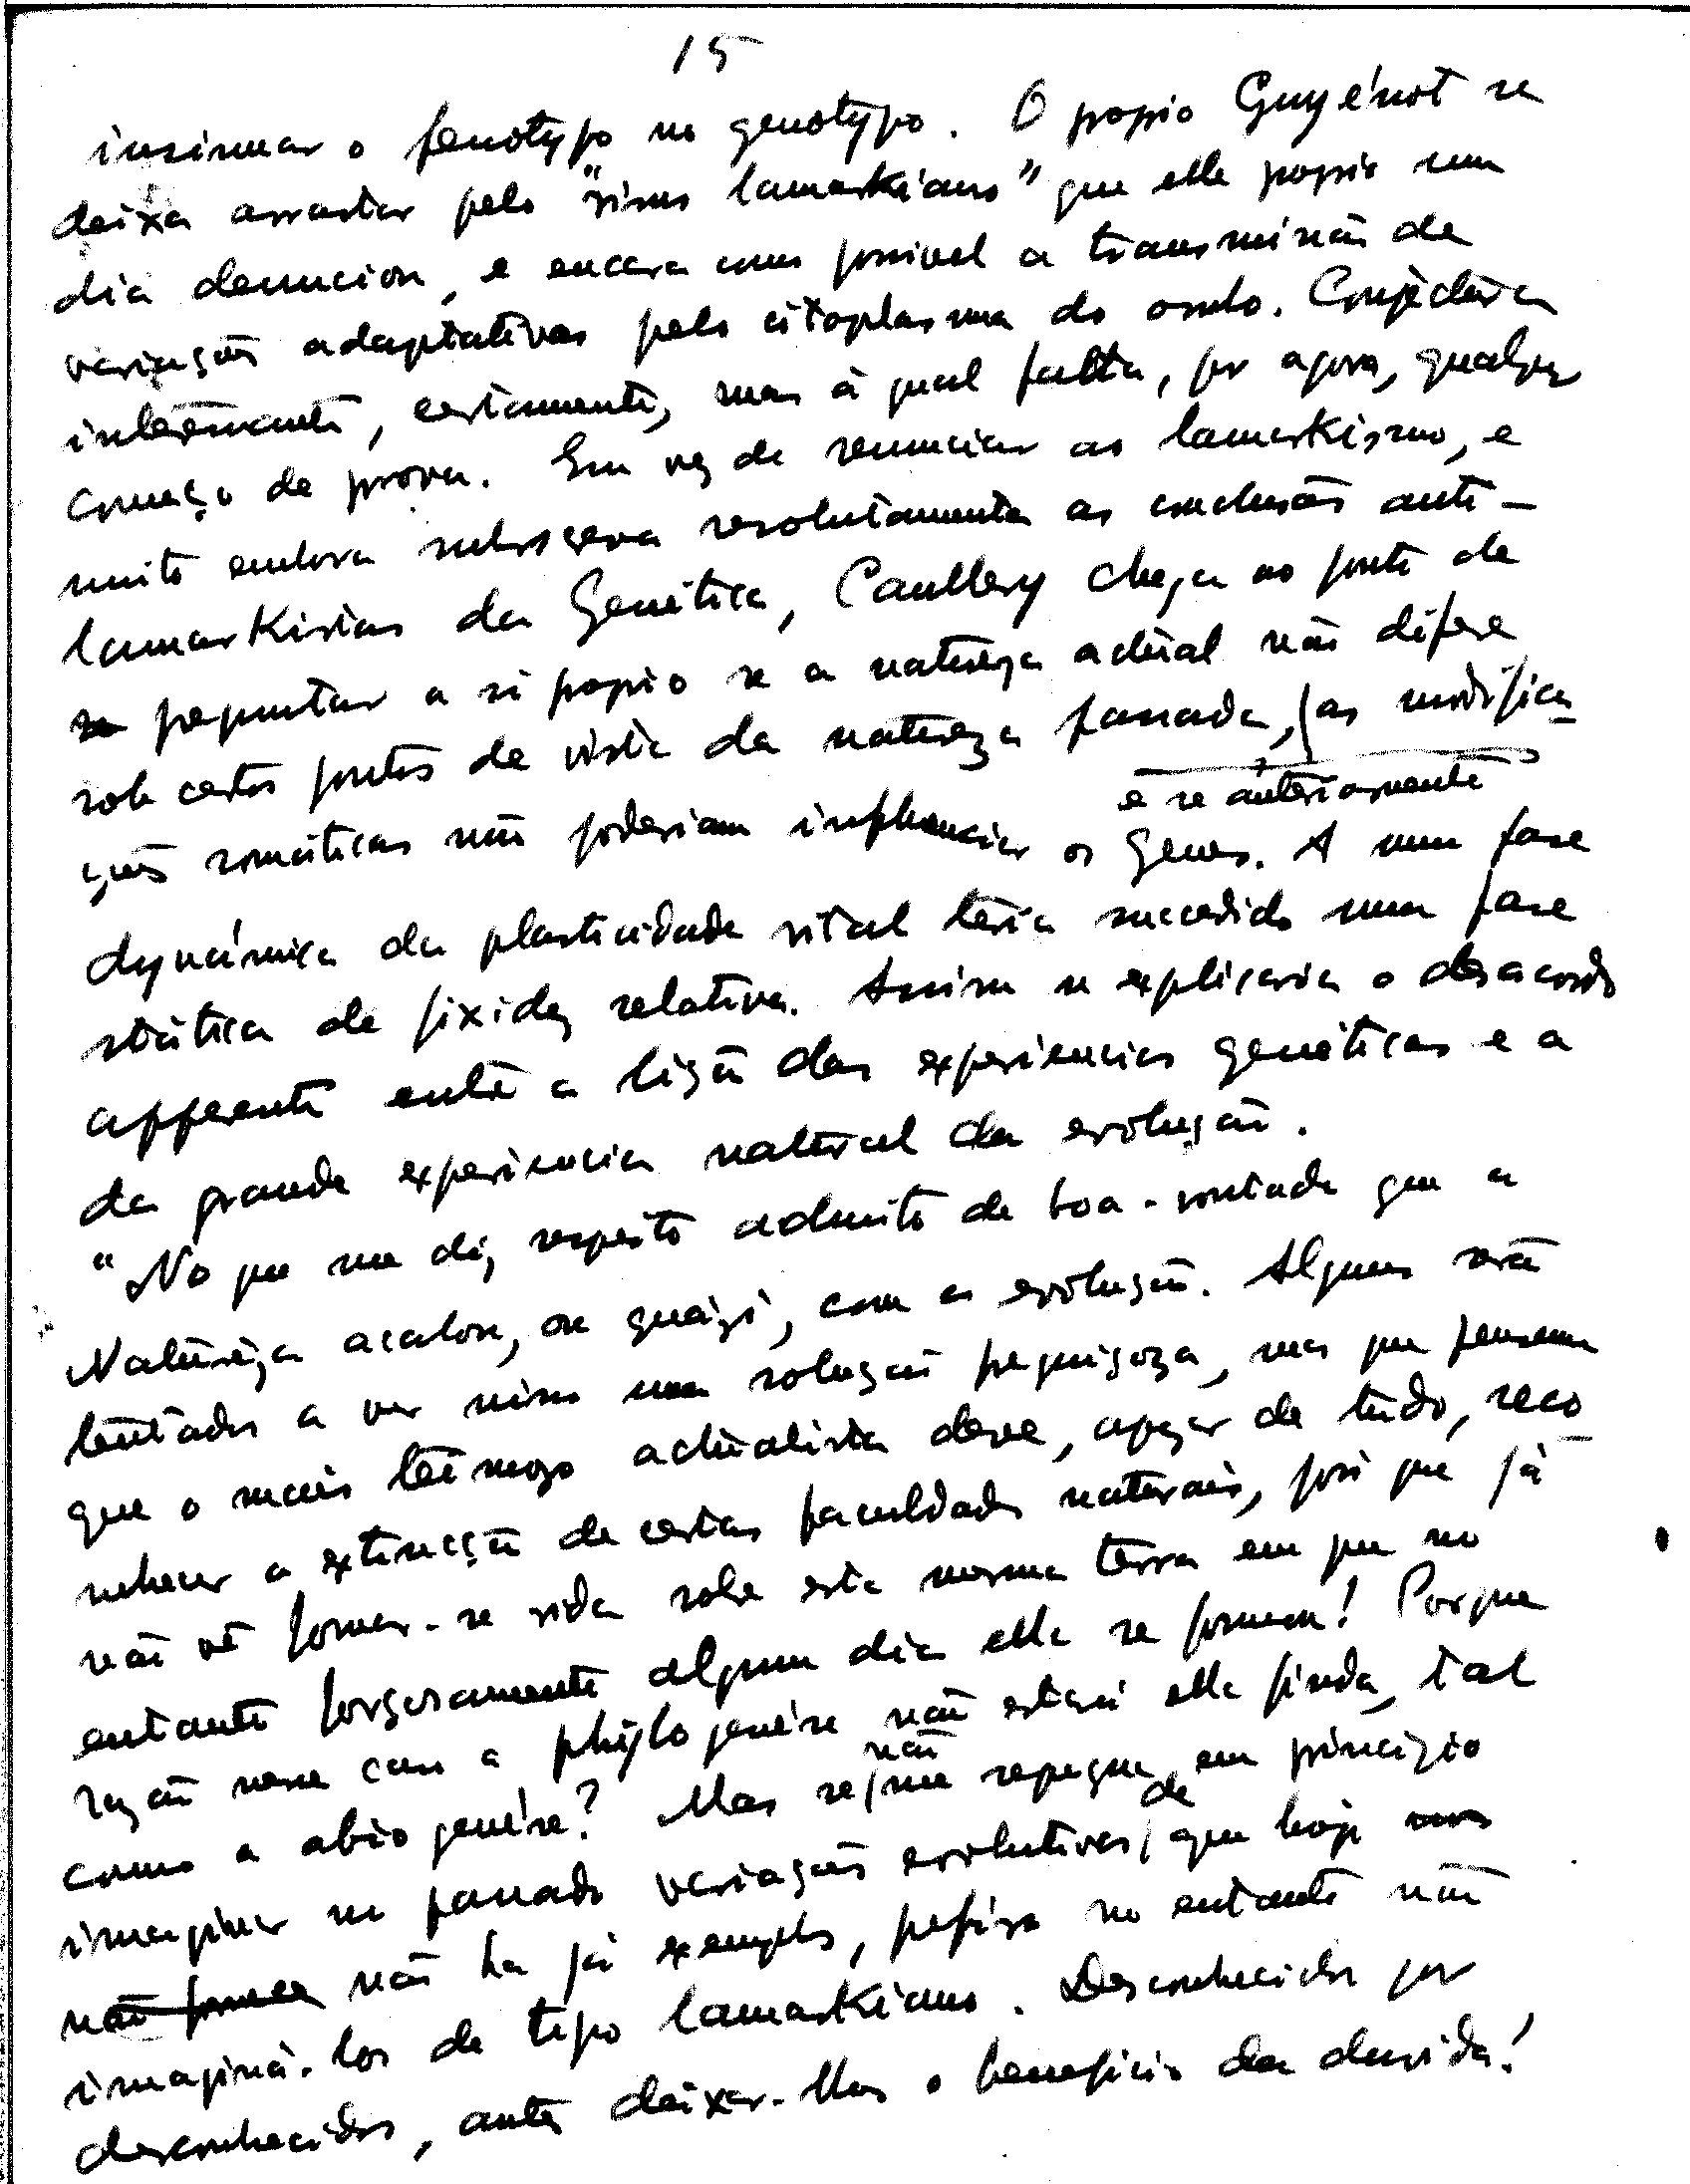 15
insinuar o fenotypo no genotypo. O propio Guyénot se
deixa arrastar pelo "visus lamarkiano" que elle propio um
dia denunciou, e encara como possivel a transmissão de
variações adaptativas pelo citoplasma do ovulo. Conjectura
interessante, certamente, mas á qual falta, por agora, qualquer
começo de prova. Em vez de renunciar ao lamarkismo, e
muito embora subscreva resolutamente as conclusões anti-
lamarkistas da Genética, Caullery chega ao ponto de
perguntar a si propio se a natureza actual não difere
sob certos pontos de vista da natureza passada, (as modifica-
e se anteriormente
ções somáticas não poderiam influenciar os genes. A uma fase
dynámica da plasticidade vital teria succedido uma fase
státtica de fixidez relativa. Assim se explicaria o desacordo
apparente entre a lição das experiencias genéticas e a
da grande experiencia natural da evolução.
"No que me diz respeito admito de boa-vontade que a
Natureza acabou, ou quázi, com a evolução. Alguns serão
tentados a ver nisso uma solução preguiçoza, mas que pensem
que o mais teimozo actualista deve, apezar de tudo, reco-
nhecer a extincção de certas faculdades naturais, pois que já
não vê formar-se vida sobre esta mesma terra em que no
entanto forçosamente algum dia ella se formou! Porque
razão nesse caso a phylogenése não estará ella finda, tal
como a abiogenése? Mas se não me repugna em principio
imaginar no passado variações evolutivas, de que hoje nos
não fornece não ha já exemplo, prefiro no entanto não
imaginá-los de tipo lamarkiano. Desconhecidos por
desconhecidos, antes deixar-lhes o beneficio da duvida!